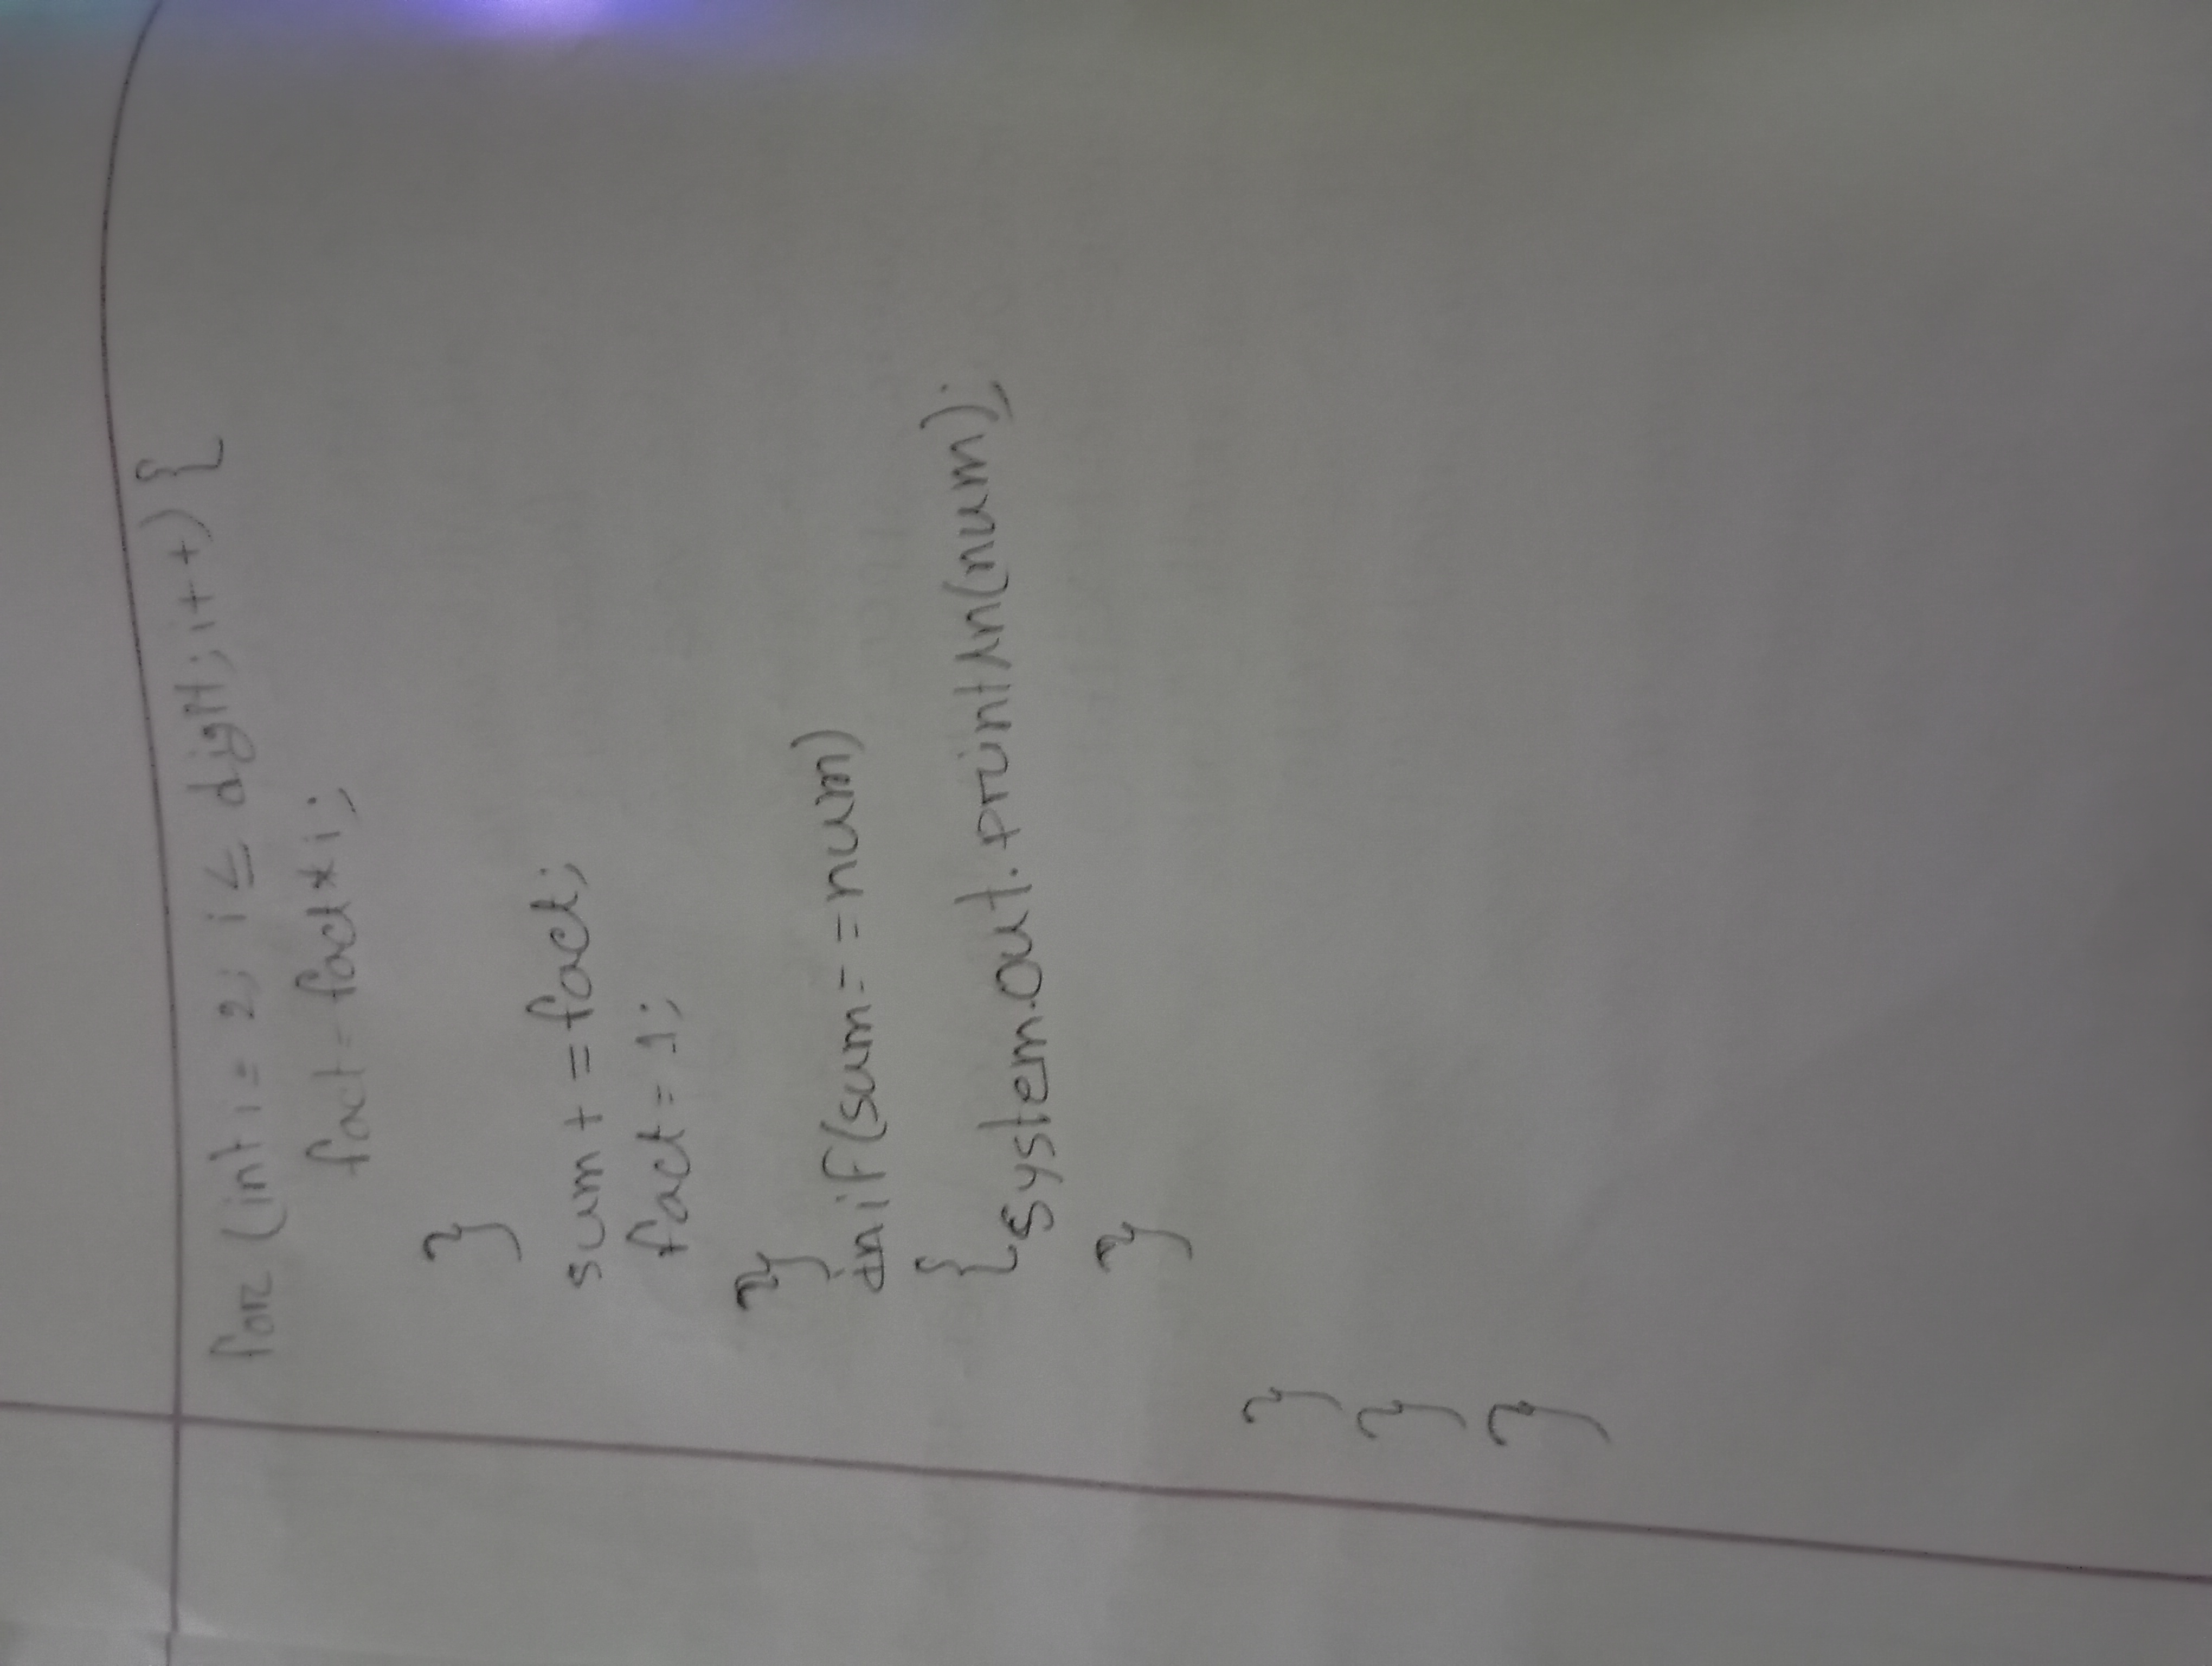 for (int i = 2; i ≤ digit; i++) {
fact = fact * i;
}
sum + = fact;
fact = 1;
}
if (sum = = num)
{ system.out.println(num);
}
}
}
}